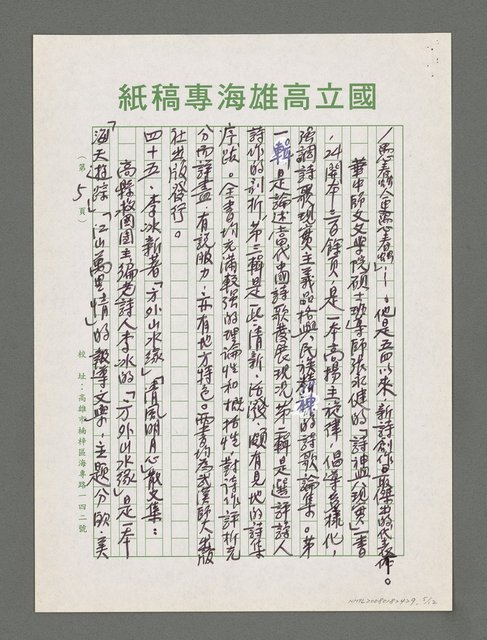 國立高雄海專稿紙
人思春，象思春」！。他是五四以來，新詩創作最傑出的代表作。
華中師大文學院碩士班導師張永健的「詩神與現實」一書
，24開本三百餘頁，是一本高揚主旋律，倡導多樣化，
強調詩歌現實主義品格與民族精神的詩歌論集。第
一輯是論述當代中國詩歌發展現況，第二輯是選評詩人
詩作的剖析，第三輯是一些清新、活潑、頗有見地的詩集
序跋。全書均充滿較強的理論性和概括性，對詩作評析充
分而詳盡，有說服力，亦有地方特色。兩書均為武漢師大出版
社出版發行。
四十五、李冰新著「方外山水緣」「清風明月心」散文集：
高縣救國團主編老詩人李冰的「方外山水緣」是一本
「海天遊踪」「江山萬里情」的報導文學，主題分歐、美
（第5頁）
校址：高雄市楠梓區海專路一四二號
NMTL20080182429 5/12